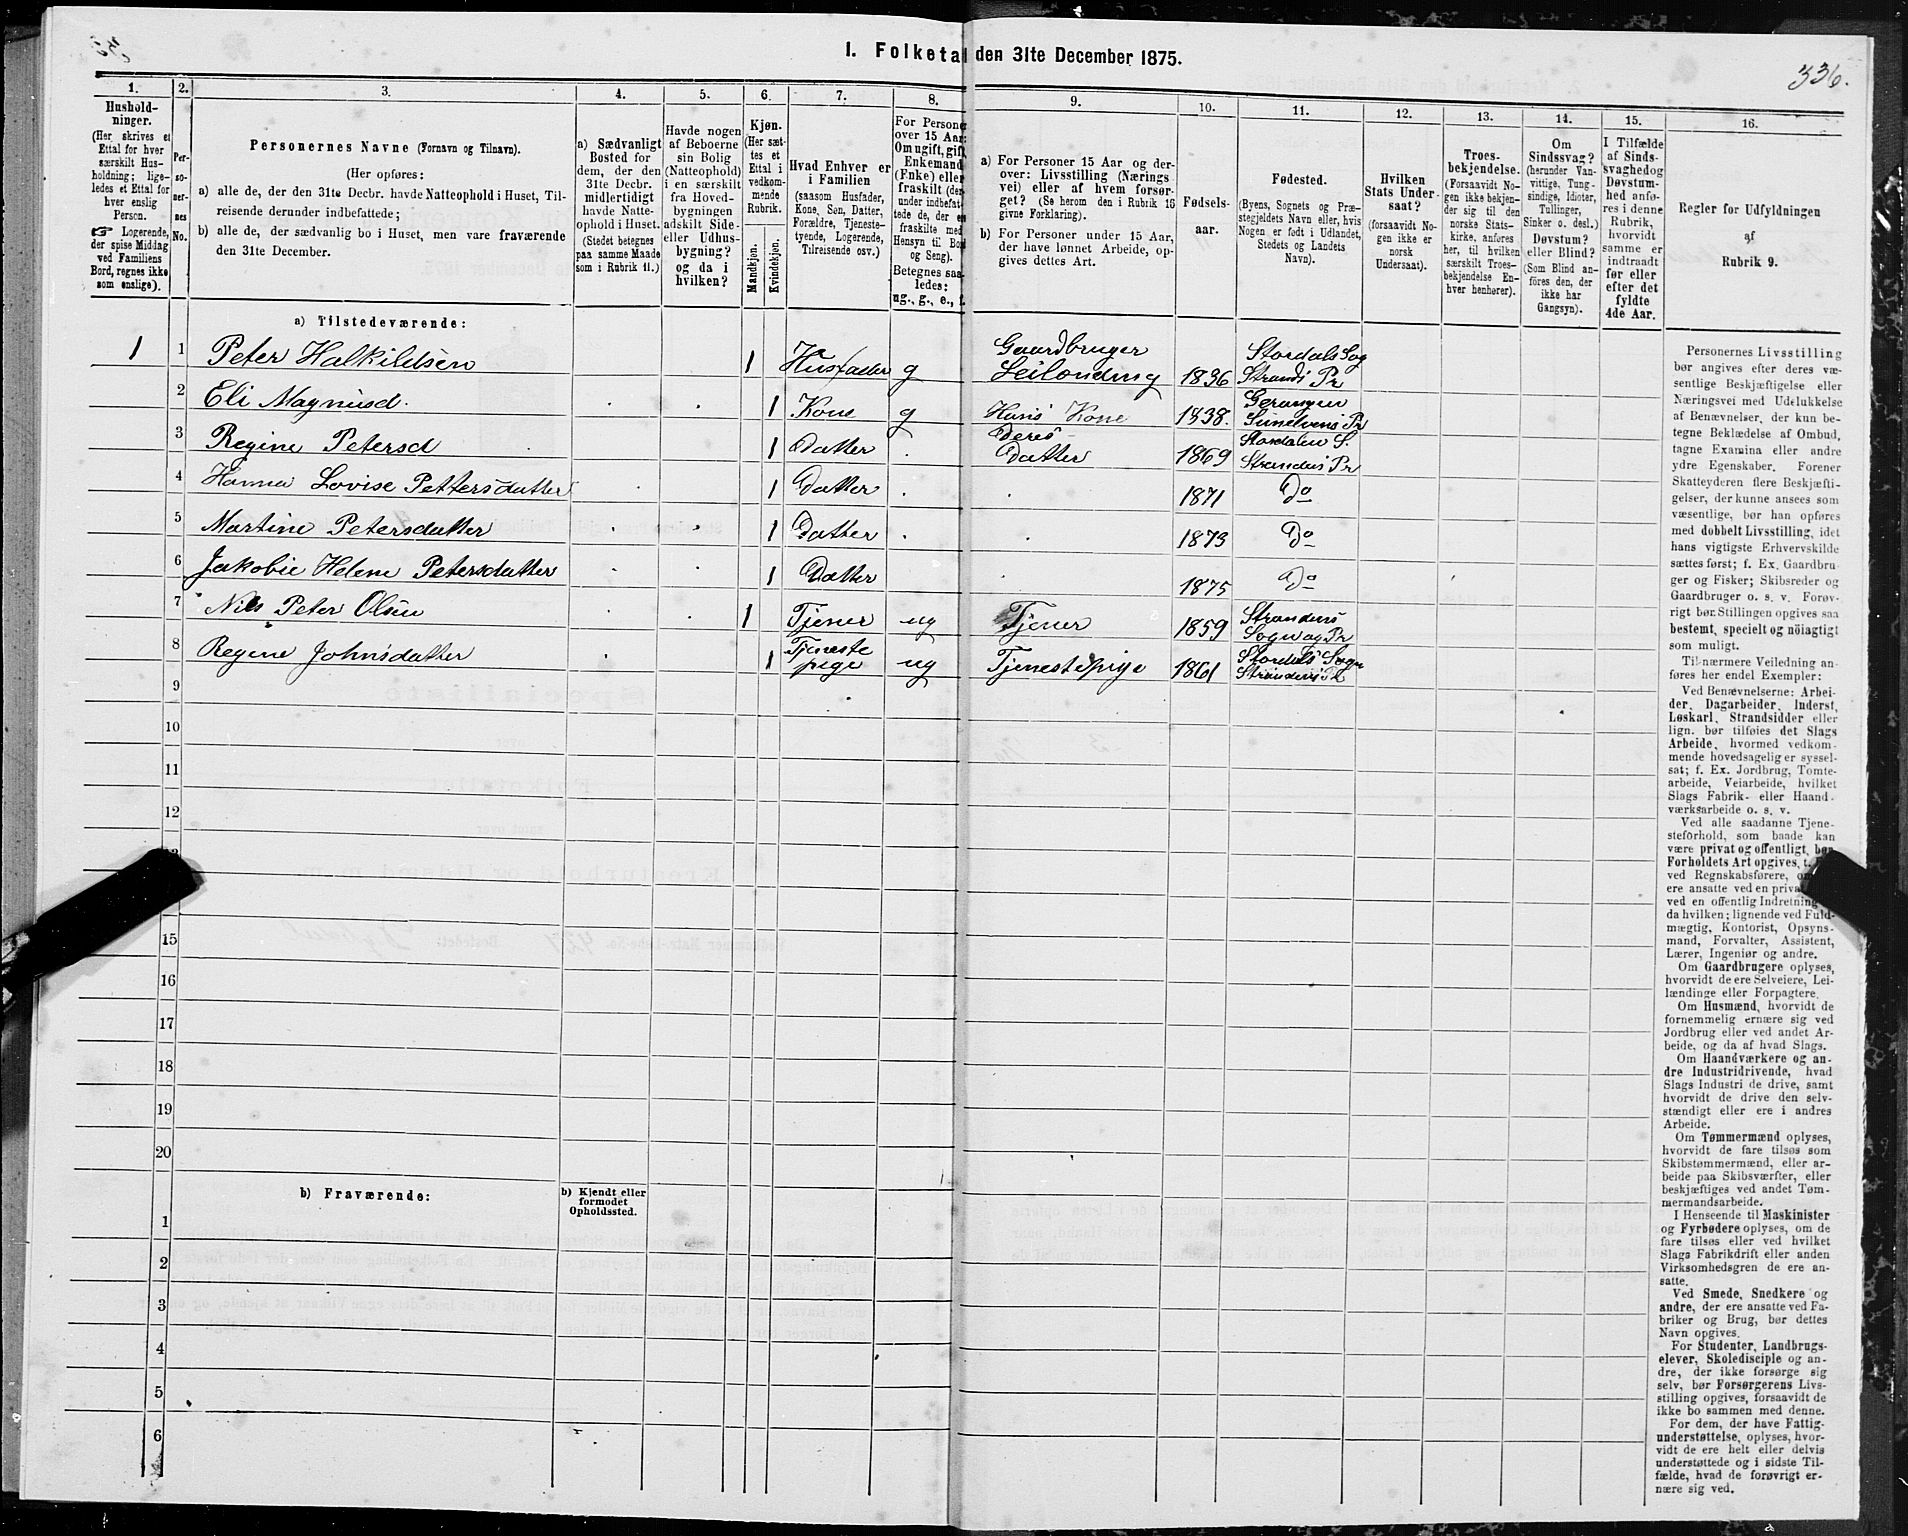 I. Folketal den 31te December 1875.
336.
1.
Hushold-
ninger.
(Her skrives et
Ettal for hver
særskilt Hus-
holdning; lige-
ledes et Ettal for
hver enslig
Person.
☞ Logerende,
der spise Middag
ved Familiens
Bord, regnes ikke
som enslige).
2.
Per-
so-
ner-
nes
No.
3.
Personernes Navne (Fornavn og Tilnavn).
(Her opføres:
a) alle de, der den 31te Decbr. havde Natteophold i Huset, Til-
reisende derunder indbefattede;
b) alle de, der sædvanlig bo i Huset, men vare fraværende
den 31te December.
4.
a) Sædvanligt
Bosted for
dem, der den
31te Decbr.
midlertidigt
havde Natte-
ophold i Huset.
(Stedet betegnes
paa samme Maade
som i Rubrik 11.)
5.
Havde nogen
af Beboerne
sin Bolig
(Natteophold)
i en særskilt
fra Hoved-
bygningen
adskilt Side-
eller Udhus-
bygning?
og da i
hvilken?
6.
Kjøn.
(Her sæt-
tes et
Ettal i
vedkom-
mende
Rubrik.
Mandkjøn.
Kvindekjøn.
7.
Hvad Enhver er
i Familien
(saasom Husfader,
Kone, Søn, Datter,
Forældre, Tjeneste-
tyende, Logerende,
Tilreisende osv.)
8.
For Persone
over 15 Aar:
Om ugift, gift,
Enkemand
(Enke) eller
fraskilt (der-
under indbefat-
tede de, der er
fraskilte med
Hensyn til Bord
og Seng).
Betegnes saa-
ledes:
ug., g., e., f.
9.
a) For Personer 15 Aar og der-
over: Livsstilling (Nærings-
vei) eller af hvem forsør-
get? (Se herom den i Rubrik 16
givne Forklaring).
b) For Personer under 15 Aar,
der have lønnet Arbeide, op-
gives dettes Art.
10.
Fødsels-
aar.
11.
Fødested.
(Byens, Sognets og Præ-
stegjeldets Navn eller, hvis
Nogen er født i Udlandet,
Stedets og Landets
Navn).
12.
Hvilken
Stats Under-
saat?
(forsaavidt No-
gen ikke er
norsk
Undersaat).
13.
Troes-
bekjendelse.
(Forsaavidt No-
gen ikke bekjen-
der sig til den
norske Stats-
kirke, anføres
her, til hvilken
særskilt Troes-
bekjendelse En-
hver henhører).
14.
Om
Sindssvag?
(herunder Van-
vittige, Tung-
sindige, Idioter,
Tullinger,
Sinker o. desl.)
Døvstum?
eller Blind?
(Som Blind an-
føres den, der
ikke har
Gangsyn).
15.
I Tilfælde
af Sinds-
svaghed og
Døvstum-
hed anfø-
res i denne
Rubrik,
hvorvidt
samme er
indtraadt
før eller
efter det
fyldte
4de Aar.
16.
Regler for Udfyldningen
af
Rubrik 9.
a) Tilstedeværende:
1 1 Peter Halkildsen 1 Husfader g Gaardbruger Leilænding 1836 Stordals Sog Strands Pr
2 Eli Magnusd. 1 Kone g Hans Kone 1838. Geranger Sunelvens Pr
3 Regine Petersd 1 Datter Deres Datter 1869 Stordalen S. Strandens Pr
4 Hanna Lovise Pettersdatter 1 Datter 1871 Do
5 Martine Petersdatter 1 Datter 1873 Do
6 Jakobie Helene Petersdatter 1 Datter 1875 Do
7 Nils Peter Olsen 1 Tjener ug Tjener 1859 Strandens Sogn og Pr
8 Regine Johnsdatter 1 Tjeneste pige ug Tjenestepige 1861 Stordals Sogn Strandens Pr
9
10
11
12
15
16
17
18
19
20
b) Fraværende:
b) Kjendt eller
formodet
Opholdssted.
1
2
3
4
5
6
Personernes Livsstilling
bør angives efter deres væ-
sentlige Beskjæftigelse eller
Næringsvei med Udelukkelse
af Benævnelser, der kun be-
tegne Beklædelse af Ombud,
tagne Examina eller andre
ydre Egenskaber. Forener
Skatteyderen flere Beskjæfti-
gelser, der kunne ansees som
væsentlige, bør han opføres
med dobbelt Livsstilling, idet
hans vigtigste Erhvervskilde
sættes først; f. Ex. Gaardbru-
ger og Fisker; Skibsreder og
Gaardbruger o. s. v. Forøv-
rigt bør Stillingen opgives saa
bestemt, specielt og nöiagtigt
som muligt.
Til nærmere Veiledning an-
føres her endel Exempler:
Ved Benævnelserne: Arbei-
der, Dagarbeider, Inderst,
Løskarl, Strandsidder eller
lign. bør tilføies det Slags
Arbeide, hvormed vedkom-
mende hovedsagelig er syssel-
sat; f. Ex. Jordbrug, Tomte-
arbeide, Veiarbeide, hvilket
Slags Fabrik- eller Haand-
værksarbeide o. s. v.
Ved alle saadanne Tjene-
steforhold, som baade kan
være privat og offentligt, bør
Forholdets Art opgives, t.
ved Regnskabsførere, om
ere ansatte ved en priva
ved en offentlig Indretning
da hvilken; lignende ved Fuld-
mægtig, Kontorist, Opsyns-
mand, Forvalter, Assistent,
Lærer, Ingeniør og andre.
Om Gaardbrugere oplyses,
hvorvidt de ere Selveiere, Lei-
lændinge eller Forpagtere.
Om Husmænd, hvorvidt de
fornemmelig ernære sig ved
Jordbrug eller ved andet Ar-
beide, og da af hvad Slags.
Om Haandværkere og an-
dre Industridrivende, hvad
Slags Industri de drive, samt
hvorvidt de drive den selv-
stændigt eller ere i andres
Arbeide.
Om Tømmermænd oplyses,
hvorvidt de fare tilsøs som
Skibstømmermænd, eller ar-
beide paa Skibsværfter, eller
beskjæftiges ved andet Tøm-
mermandsarbeide.
I Henseende til Maskinister
og Fyrbødere oplyses, om de
fare tilsøs eller ved hvilket
Slags Fabrikdrift eller anden
Virksomhedsgren de ere an-
satte.
Ved Smede, Snedkere og
andre, der ere ansatte ved Fa-
briker og Brug, bør dettes
Navn opgives.
For Studenter, Landbrugs-
elever, Skoledisciple og an-
dre, der ikke forsørge sig
selv, bør Forsørgerens Livs-
stilling opgives, forsaavidt de
ikke bo sammen med denne.
For dem, der have Fattig-
understøttelse, oplyses, hvor-
vidt de ere helt eller delvis
understøttede og i sidste Til-
fælde, hvad de forøvrigt er-
nære sig ved.